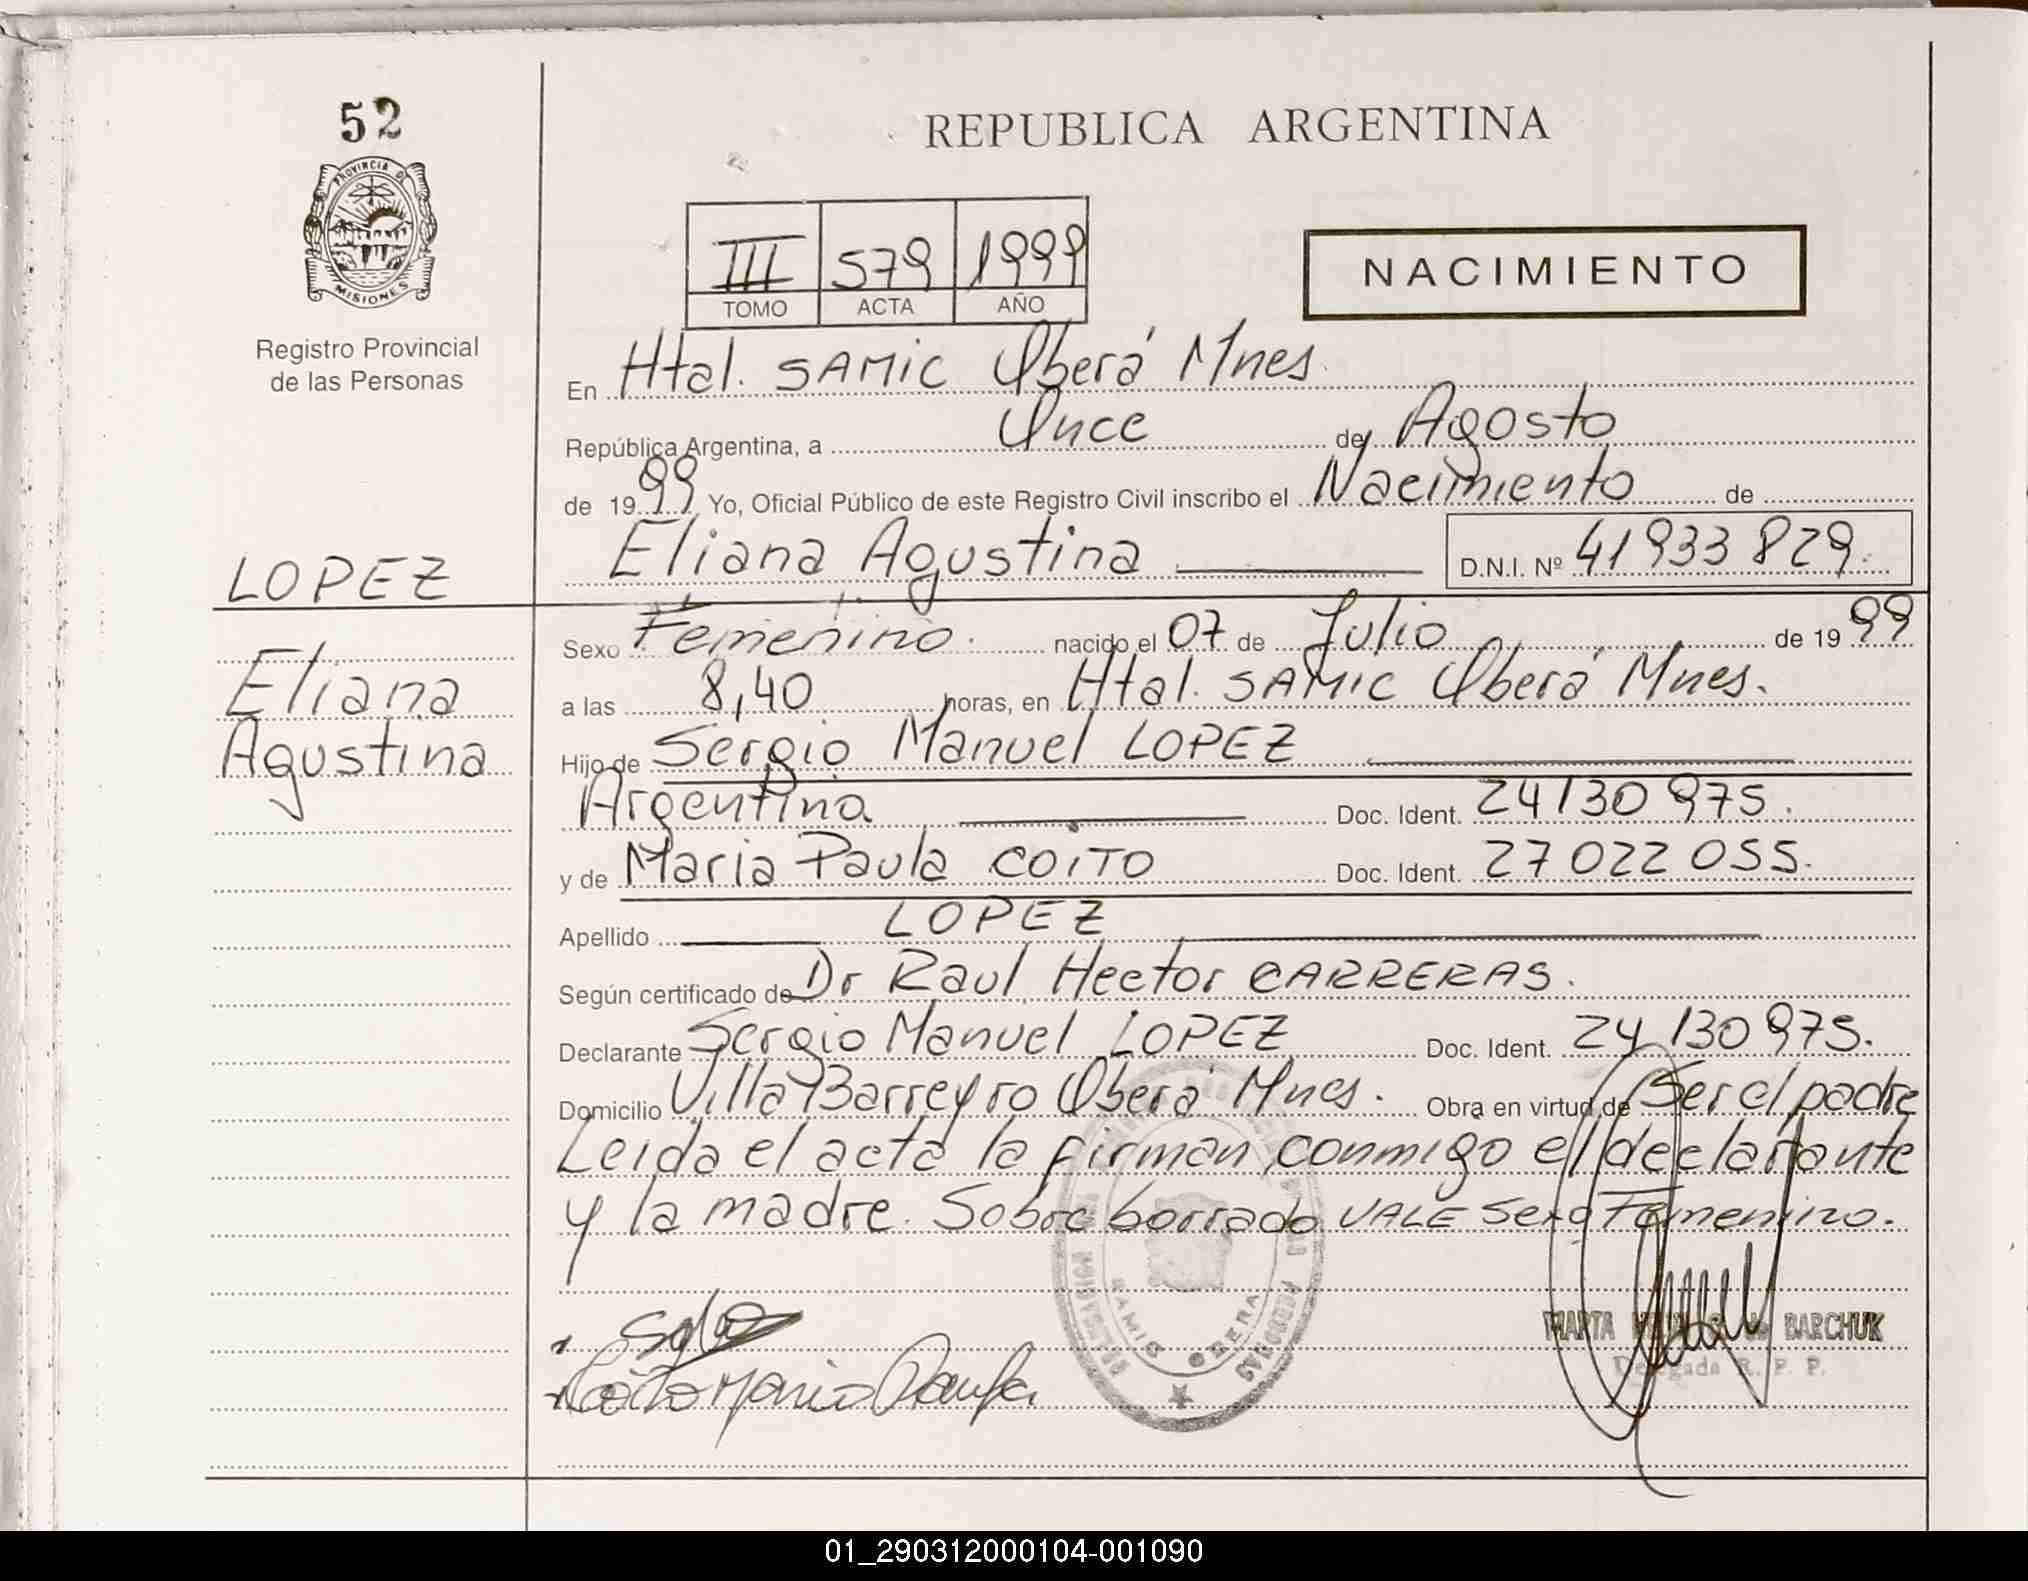 52
PROVINCIA DE
MISIONES
Registro Provincial
de las Personas
LOPEZ
Eliana
Agustina
REPUBLICA ARGENTINA
III 579 1999
TOMO ACTA AÑO
NACIMIENTO
En Htal. SAMIC Oberá Mnes.
República Argentina, a Once de Agosto
de 1999 Yo, Oficial Público de este Registro Civil inscribo el Nacimiento de
Eliana Agustina D.N.I. Nº 41933829.
Sexo Femenino. nacido el 07 de Julio de 1999
a las 8,40 horas, en Htal. SAMIC Oberá Mnes.
Hijo de Sergio Manuel LOPEZ
Argentina Doc. Ident. 24130975.
y de Maria Paula COITO Doc. Ident. 27022055.
Apellido LOPEZ
Según certificado de Dr Raul Hector CARRERAS.
Declarante Sergio Manuel LOPEZ Doc. Ident. 24130975.
Domicilio Villa Barreyro Oberá Mnes. Obra en virtud de Ser el padre
Leida el acta la firman conmigo el declarante
y la madre. Sobre borrado VALE Sexo Femenino.
Coito Maria Paula
SAMIC OBERA
MARTA BARCHUK
Delegada R. P. P.
01_290312000104-001090